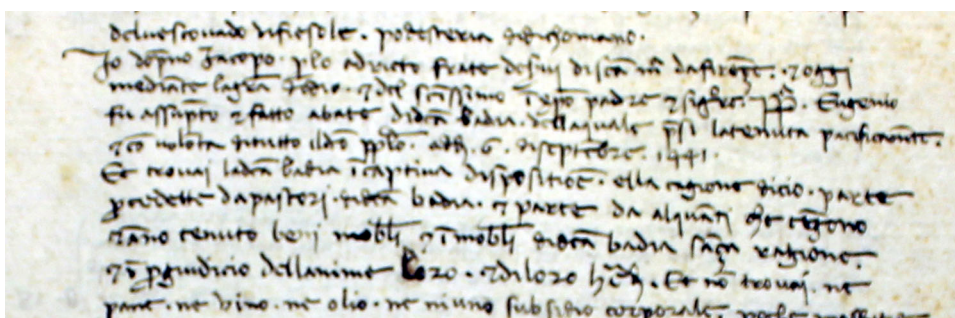 del vescovado di fiesole . podesteria didichomano .
Io dopno Jacopo . p lo adricto frate deSui disca mª dafirençe . et oggi
mediante lagra didio . et del scissimo i xpo padre et sigre . PP . Eugenio
fu assupto et fatto abate didca badia . dellaquale psi latenuta pacificamte .
et co volota ditutto ildco pplo . adi . 6 . diseptebre . 1441 .
Et trovai ladca badia i captiva dispositioe . ella cagione dicio . parte
procedette dapastori . didca badia . et parte da alquati che tegono
et ano tenuto beni mobli et imobli didca badia saça ragione .
et i pgiudicio dellanime loro . et diloro h . Et no trovai . ne
pane . ne vino . ne olio . ne niuno subsidio corporale